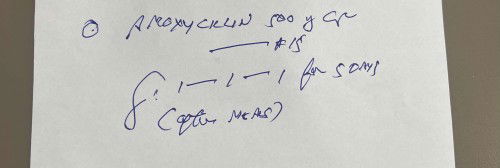 AMOXYCILLIN 500 g Cap
#15
S: 1 — 1 — 1 for 5 DAYS
(after MEALS)